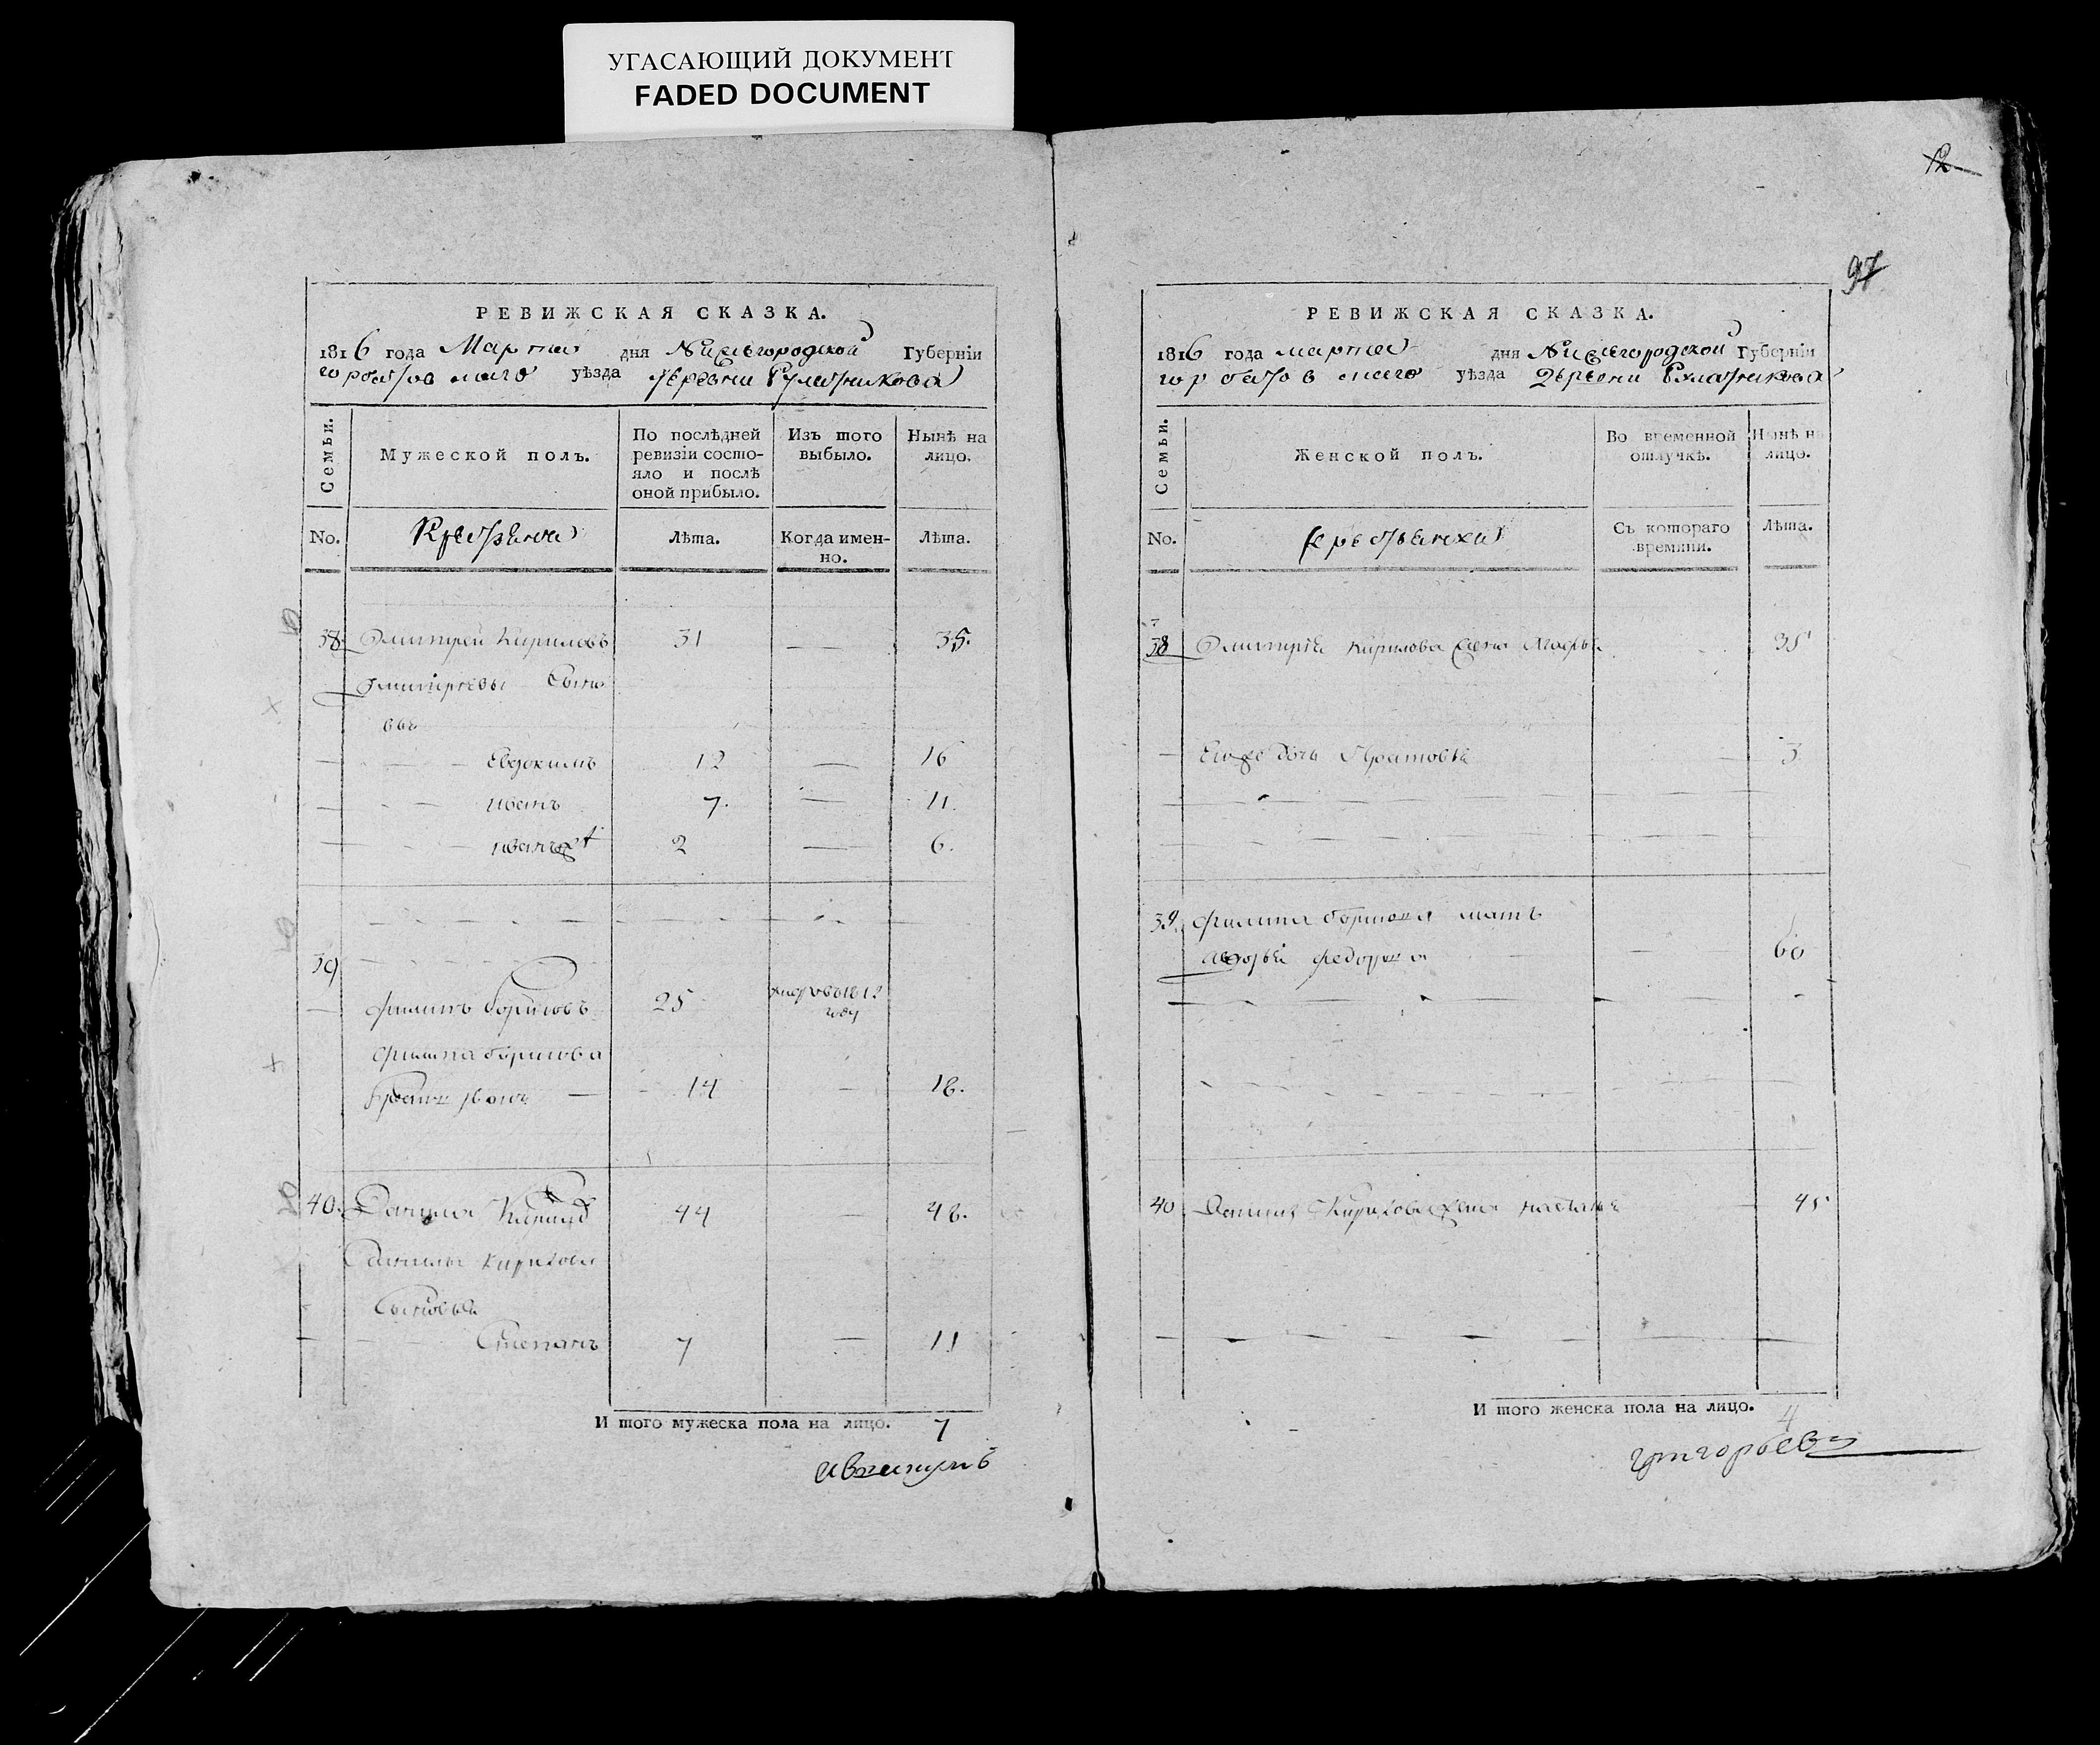 УГАСАЮЩИЙ ДОКУМЕНТ
FADED DOCUMENT
12
97
РЕВИЖСКАЯ СКАЗКА.
1816 года Марта дня Нижегородской Губерніи
горбатовскаго уѣзда деревни
Семьи.
Мужеской полъ.
По послѣдней ревизіи состо-
яло и послѣ
оной прибыло.
Изъ того
выбыло.
Нынѣ на
лицо.
No.
Крестьяне
Лѣта.
Когда имен-
но.
Лѣта.
38 Дмитрей Кириловъ 31 — 35.
Дмитріевы сыно
вье
Евдокимъ 12 — 16
иванъ 7. — 11.
иванъ же 2 — 6.
39
филипъ борисовъ 25 1812
году
филипа борисова
братъ 14 — 18.
40. Данила 44 — 48.
Данилы
сыновья
Степанъ 7 — 11
И того мужеска пола на лицо. 7
РЕВИЖСКАЯ СКАЗКА.
1816 года марта дня Нижегородской Губерніи
горбатовскаго уѣзда деревни
Семьи.
Женской полъ.
Во временной
отлучкѣ.
Нынѣ на
лицо.
No.
крестьянки
Съ котораго
времяни.
Лѣта.
38 Дмитрія Кирилова жена 35
Его же дочь 3
39. филипа борисова мать
федорова — 60
40 Данилы жена — 45
И того женска пола на лицо. 4
григорьевъ